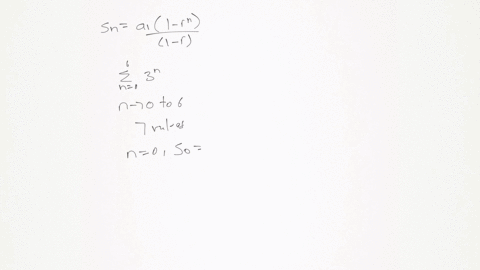 Sn = a1(1-r^n)/(1-r)
6
Σ 3^n
n=0
n→0 to 6
7 values
n=0, S0=